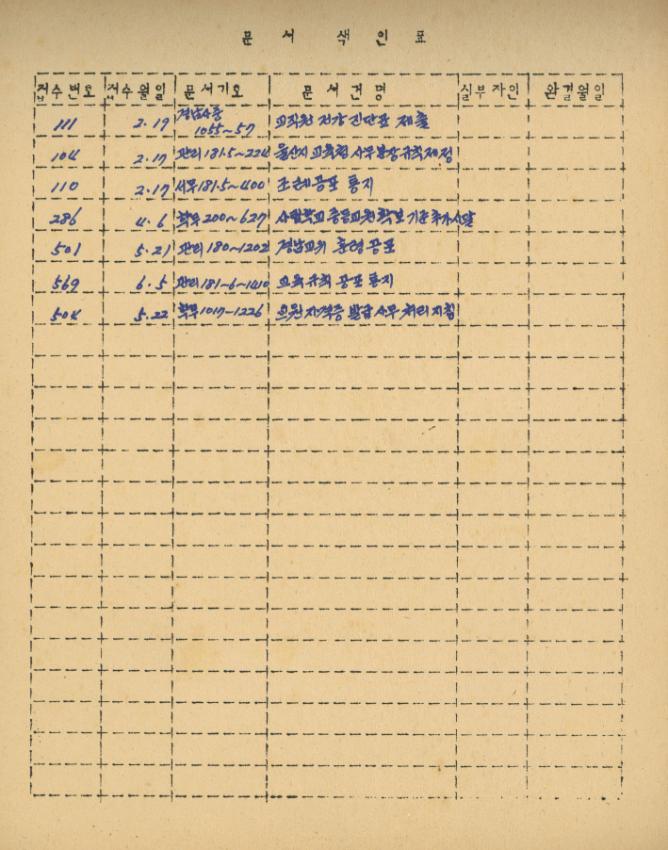 문서 색인표
접수번호 접수월일 문서기호 문서건명 실부자인 완결월일
111 2.19 경남사중 1055~57 교직원 건강 진단표 제출
104 2.17 관리 181.5~224 울산시 교육청 사무분장규칙제정
110 2.17 서무 181.5~400 조례공포 통지
286 4.6 학무 200~627 사립학교 중등교원 확보 기준 추가시달
501 5.21 관리 180~1202 경남교위 훈령 공포
569 6.5 관리 181-6~1410 교육규칙 공포 통지
504 5.22 학무 1017-1226 교원자격증 발급 사무 처리지침